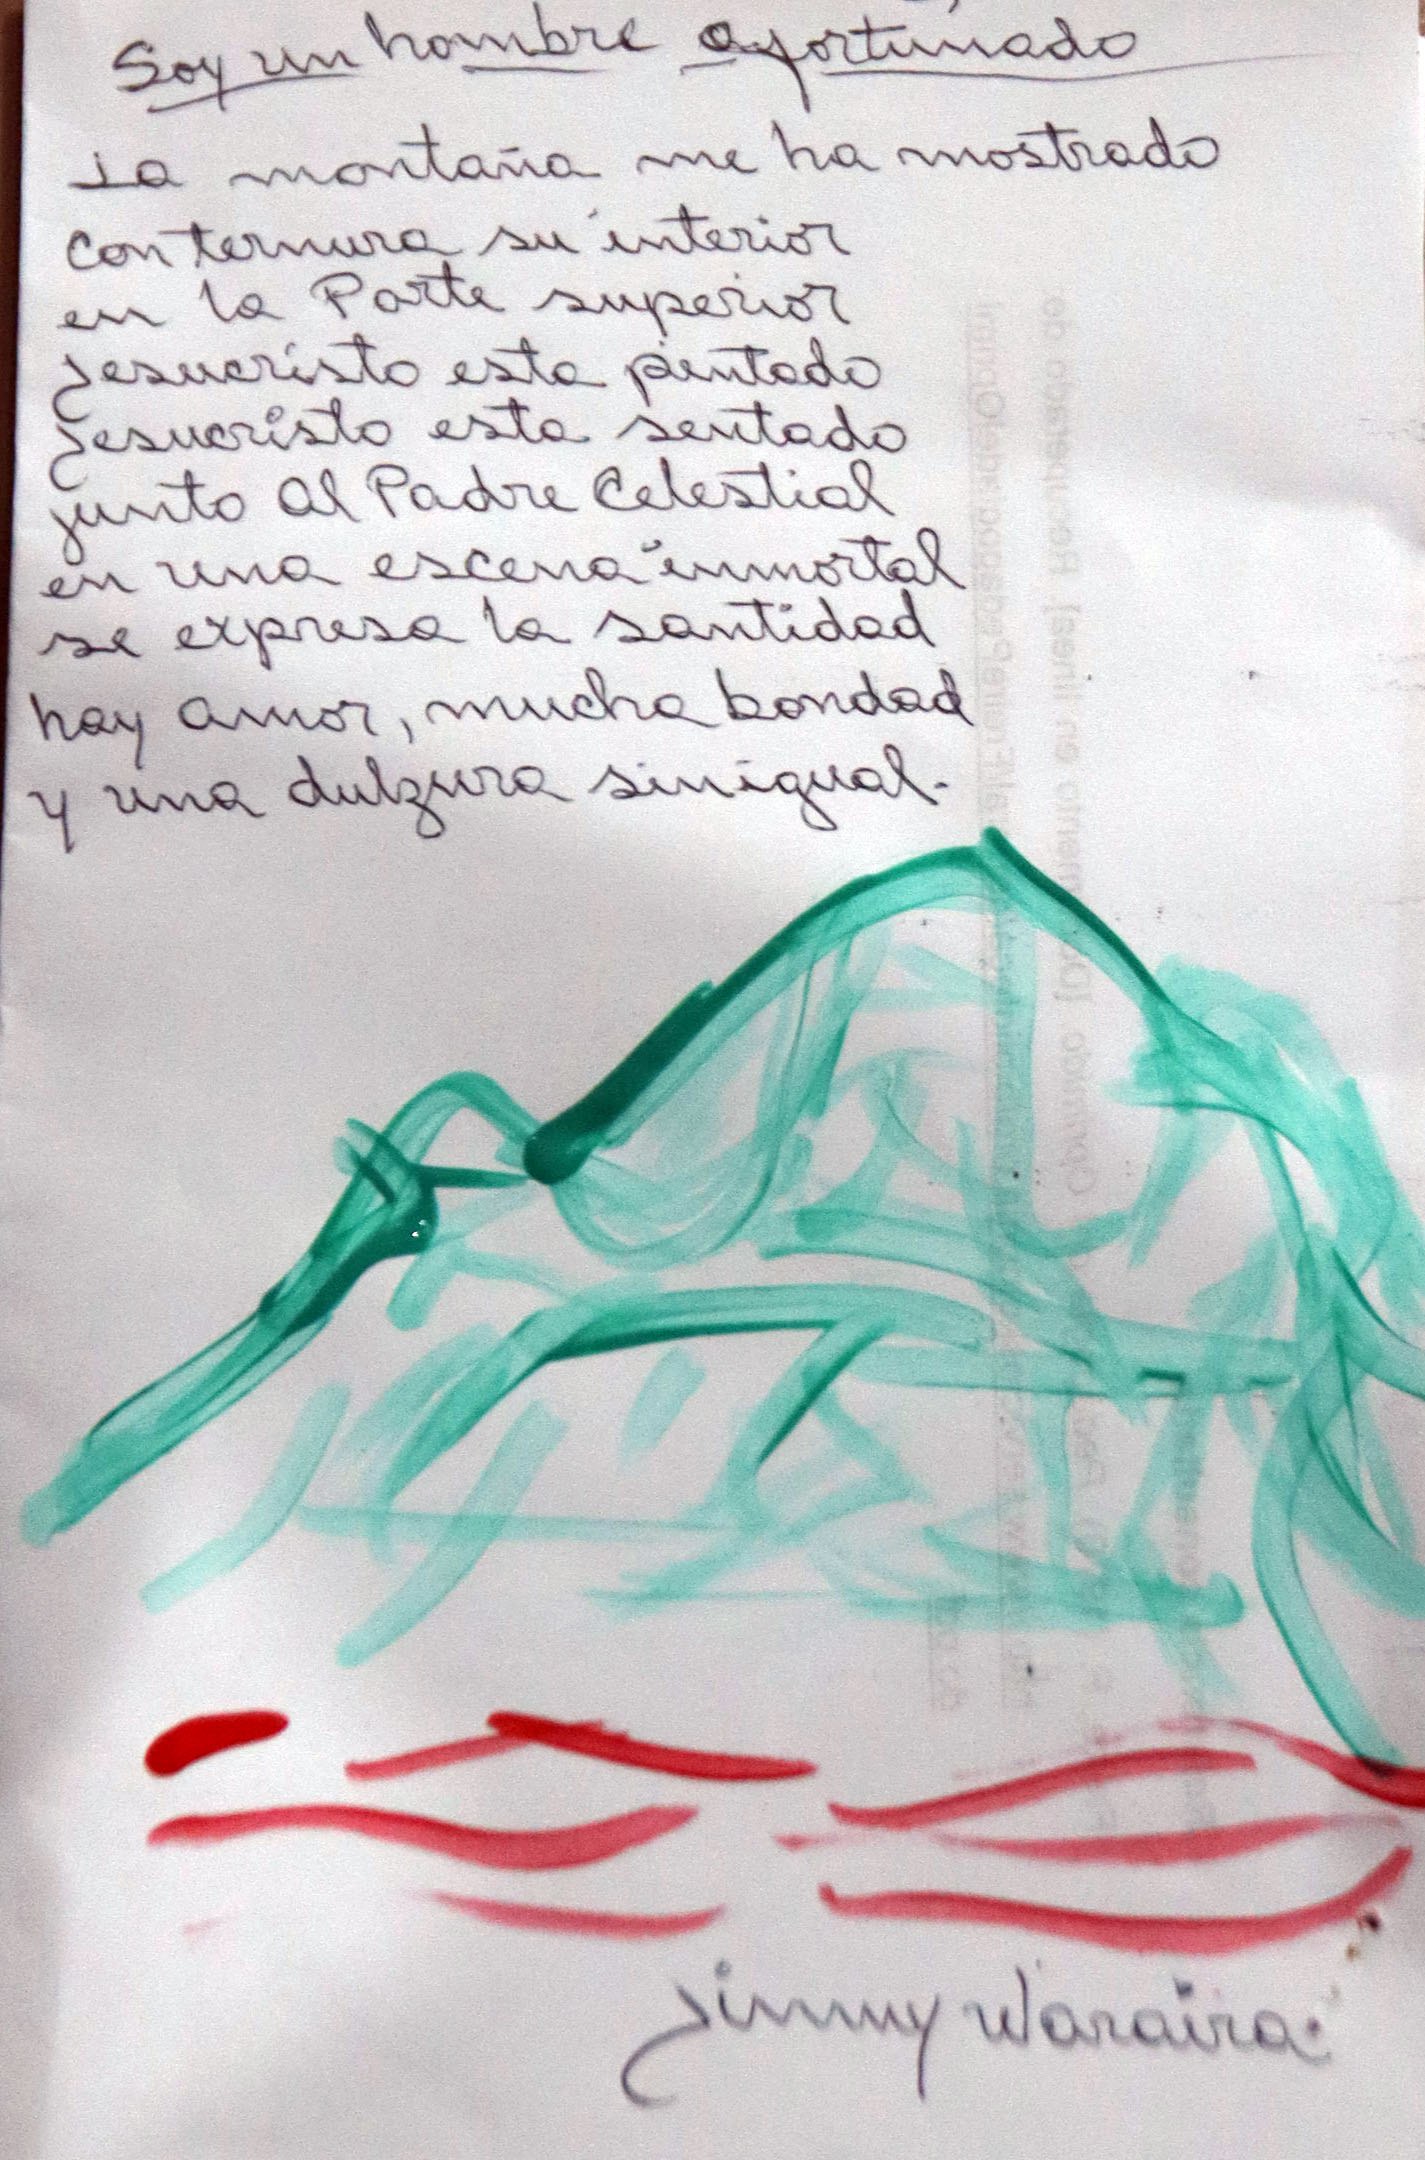 Soy un hombre afortunado
La montaña me ha mostrado
con ternura su interior
en la Parte superior
Jesucristo esta pintado
Jesucristo esta sentado
junto al Padre Celestial
en una escena inmortal
se expresa la santidad
hay amor, mucha bondad
y una dulzura sinigual.
Jimmy Waraira